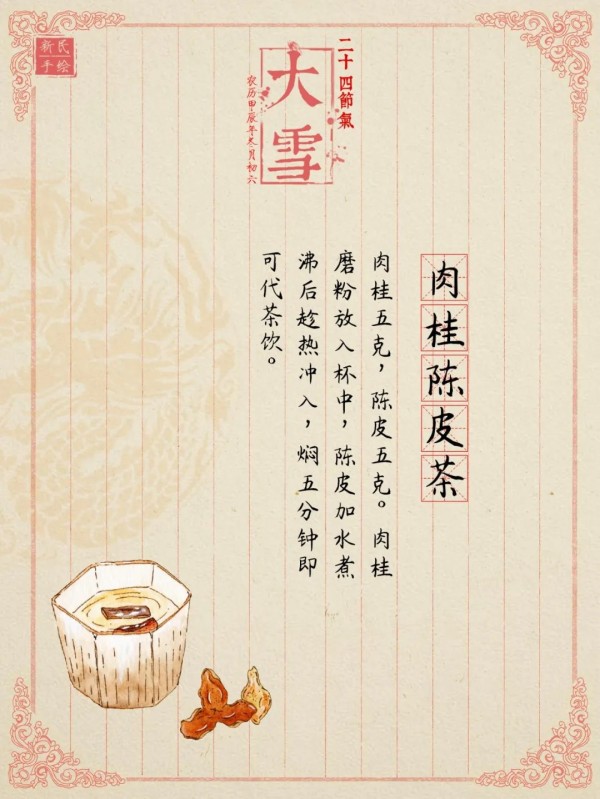 新民
手绘
二十四節氣
大雪
农历甲辰年冬月初六
肉桂陈皮茶
肉桂五克，陈皮五克。肉桂
磨粉放入杯中，陈皮加水煮
沸后趁热冲入，焖五分钟即
可代茶饮。